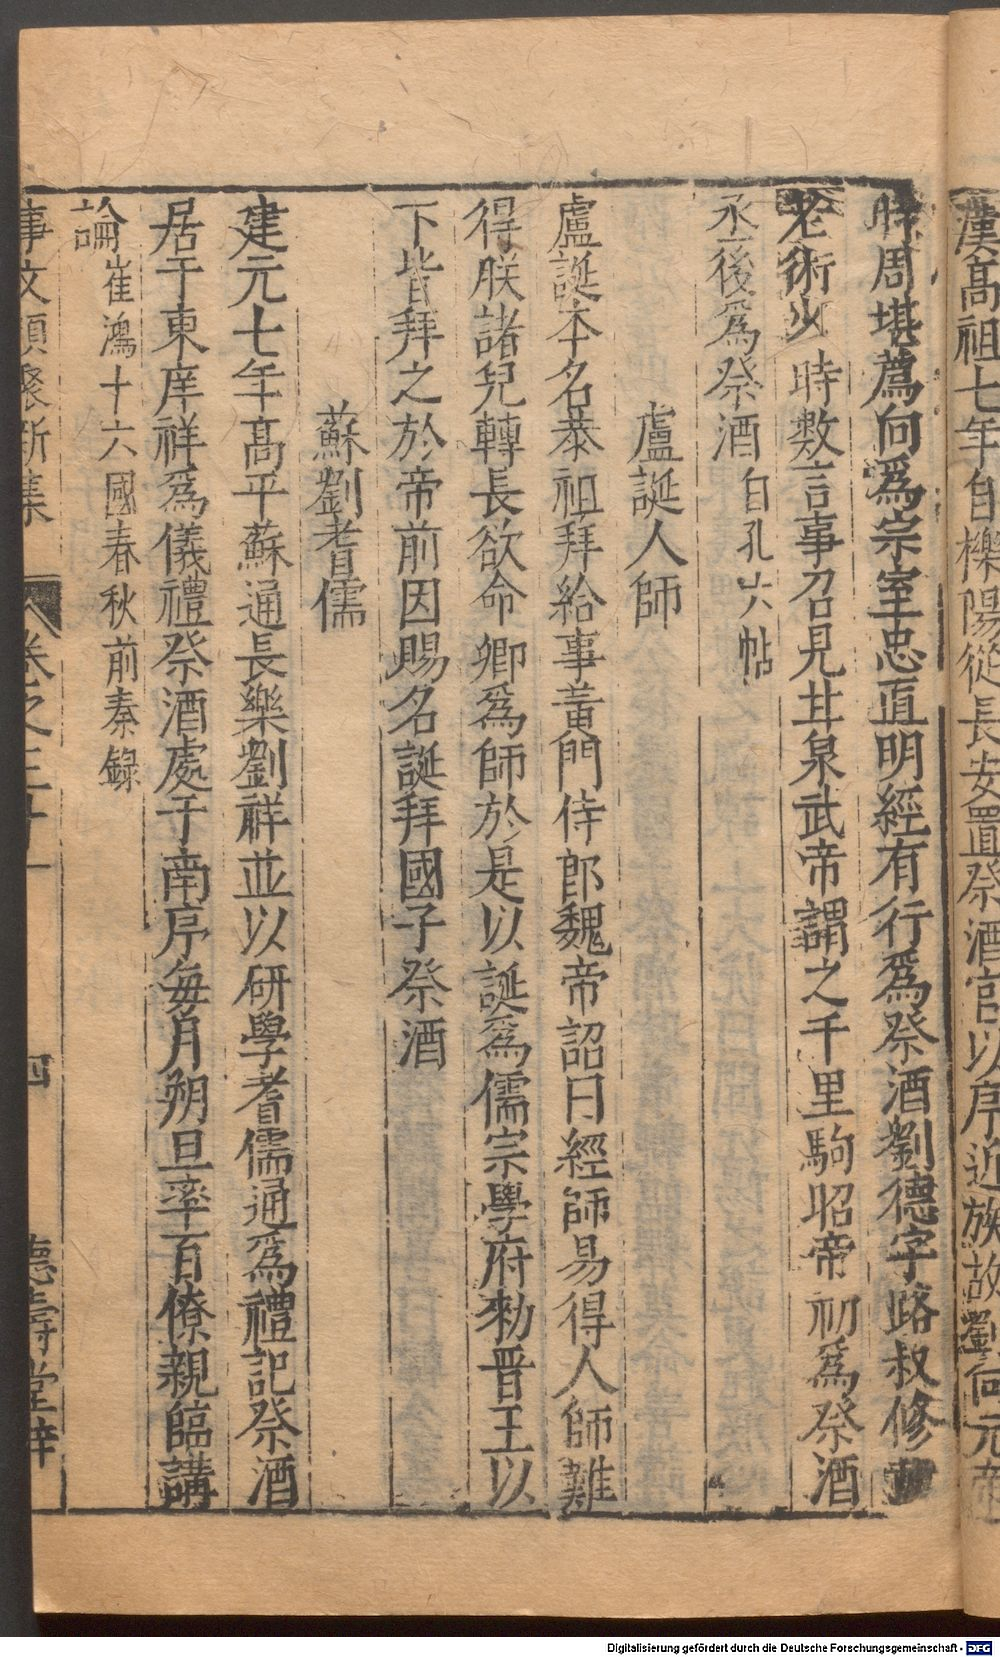 漢高祖七年自櫟陽從長安置祭酒官以序近族故劉向元帝
時周堪薦向爲宗室忠直明經有行爲祭酒劉德字路叔修黄
老術少時數言事召見甘泉武帝謂之千里駒昭帝初爲祭酒
丞後爲祭酒自孔六帖
盧誕人師
盧誕本名恭祖拜給事黃門侍郎魏帝詔曰經師易得人師難
得朕諸兒轉長欲命卿爲師於是以誕爲儒宗學府勑晋王以
下皆拜之於帝前因賜名誕拜國子祭酒
蘇劉耆儒
建元七年高平蘇通長樂劉祥並以研學耆儒通爲禮記祭酒
居于東庠祥爲儀禮祭酒處于南序每月朔旦率百僚親臨講
論崔鴻十六國春秋前秦録
事文類聚新集 卷之三十一 四 德壽堂梓
Digitalisierung gefördert durch die Deutsche Forschungsgemeinschaft - DFG